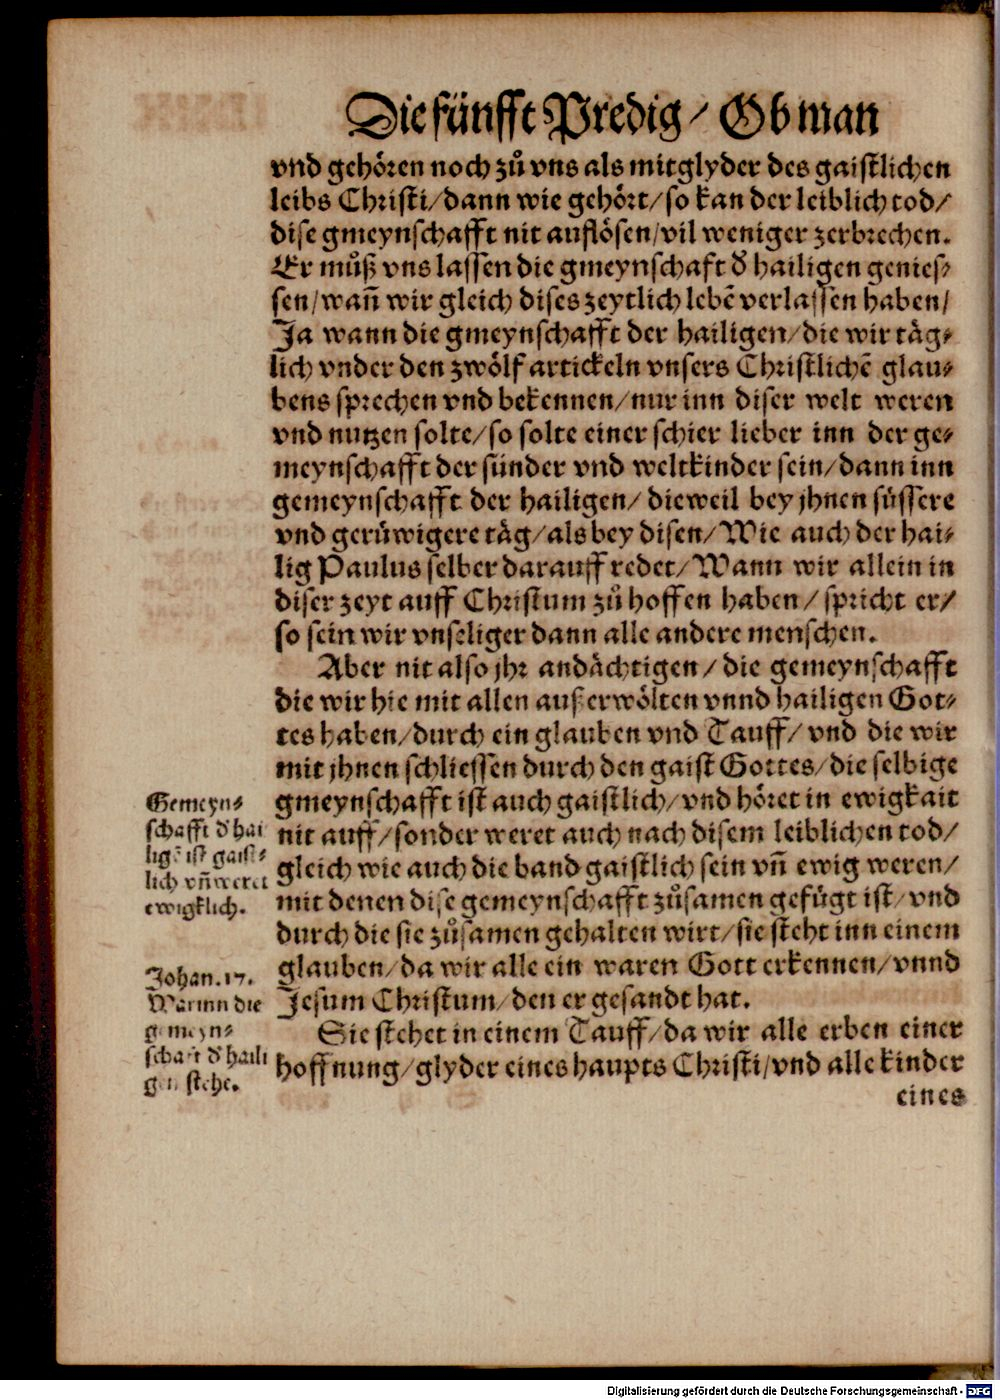 Die fünfft Predig/ Ob man
vnd gehören noch zů vns als mitglyder des gaistlichen
leibs Christi/dann wie gehört/so kan der leiblich tod/
dise gmeynschafft nit auflösen/vil weniger zerbrechen.
Er můß vns lassen die gmeynschaft d' hailigen genies-
sen/wañ wir gleich dises zeytlich lebē verlassen haben/
Ja wann die gmeynschafft der hailigen/die wir täg-
lich vnder den zwölf artickeln vnsers Christlichē glau-
bens sprechen vnd bekennen/nur inn diser welt weren
vnd nutzen solte/so solte einer schier lieber inn der ge-
meynschafft der sünder vnd weltkinder sein/dann inn
gemeynschafft der hailigen/dieweil bey jhnen süssere
vnd gerüwigere täg/als bey disen/Wie auch der hai-
lig Paulus selber darauff redet/Wann wir allein in
diser zeyt auff Christum zů hoffen haben/spricht er/
so sein wir vnseliger dann alle andere menschen.
Aber nit also jhr andächtigen/die gemeynschafft
die wir hie mit allen außerwölten vnnd hailigen Got-
tes haben/durch ein glauben vnd Tauff/vnd die wir
mit jhnen schliessen durch den gaist Gottes/die selbige
gmeynschafft ist auch gaistlich/vnd höret in ewigkait
nit auff/sonder weret auch nach disem leiblichen tod/
gleich wie auch die band gaistlich sein vñ ewig weren/
mit denen dise gemeynschafft zůsamen gefügt ist/vnd
durch die sie zůsamen gehalten wirt/sie steht inn einem
glauben/da wir alle ein waren Gott erkennen/vnnd
Jesum Christum/den er gesandt hat.
Sie stehet in einem Tauff/da wir alle erben einer
hoffnung/glyder eines haupts Christi/vnd alle kinder
eines
Gemeyn-
schafft d' hai
ligē ist gaist-
lich vñ weret
ewigklich.
Johan. 17.
Warinn die
gmeyn-
schaft d' haili
gen stehe.
Digitalisierung gefördert durch die Deutsche Forschungsgemeinschaft - DFG